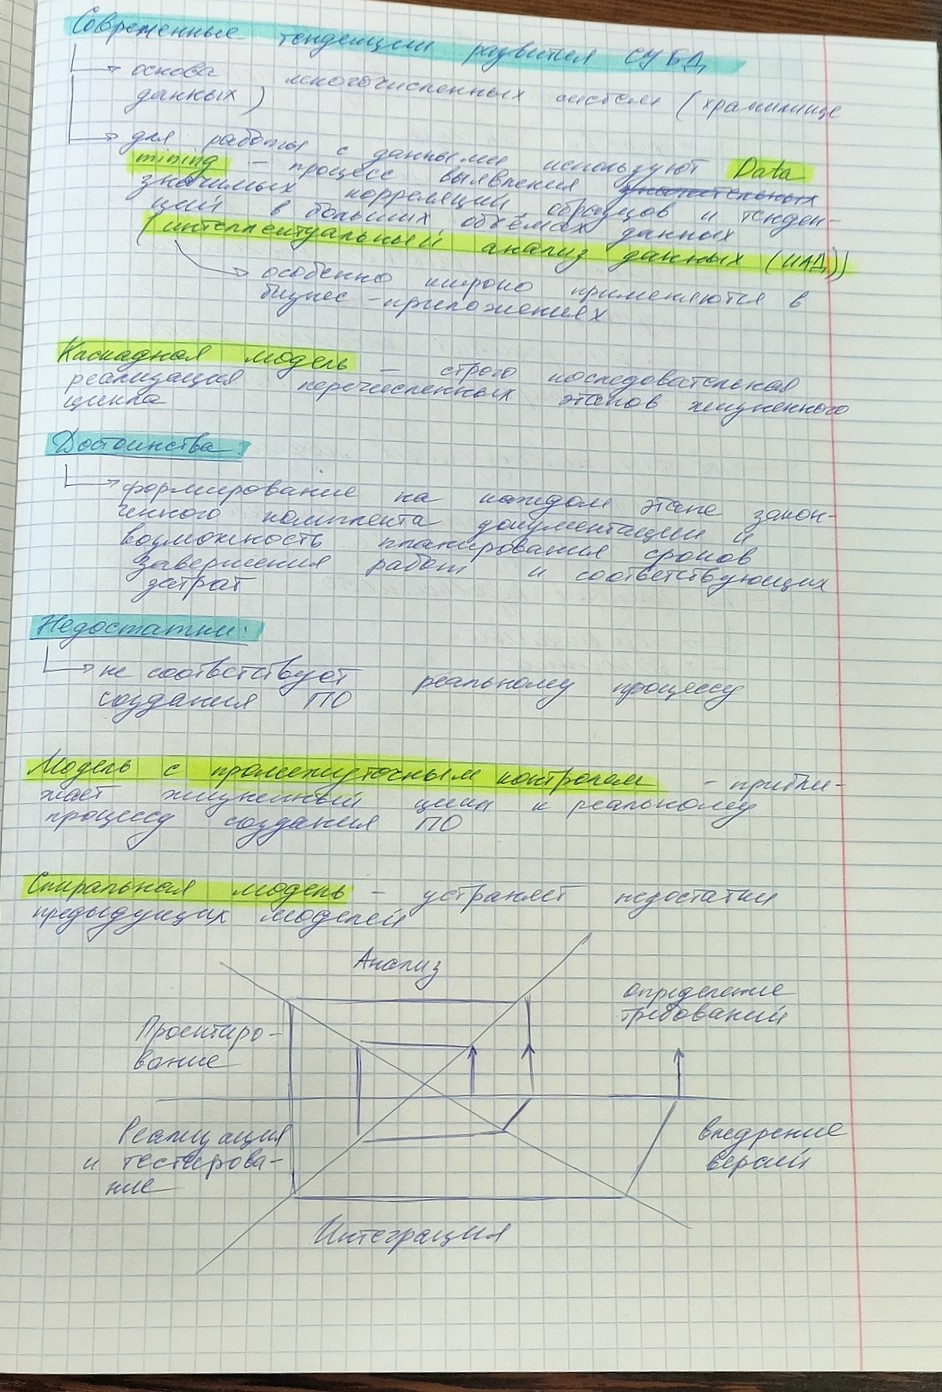 Современные тенденции развития СУБД
основа многочисленных систем (хранилище
данных)
для работы с данными используют Data
mining – процесс выявления значительных
значимых корреляций, образцов и тенден-
ций в больших объёмах данных
(интеллектуальный анализ данных (ИАД))
особенно широко применяются в
бизнес-приложениях
Каскадная модель – строго последовательная
реализация перечисленных этапов жизненного
цикла
Достоинства:
формирование на каждом этапе закон-
ченного комплекта документации и
возможность планирования сроков
завершения работ и соответствующих
затрат
Недостатки:
не соответствует реальному процессу
создания ПО
Модель с промежуточным контролем – прибли-
жает жизненный цикл к реальному
процессу создания ПО
Спиральная модель – устраняет недостатки
предыдущих моделей
Анализ
определение
требований
Проектиро-
вание
Реализация
и тестирова-
ние
внедрение
версий
Интеграция